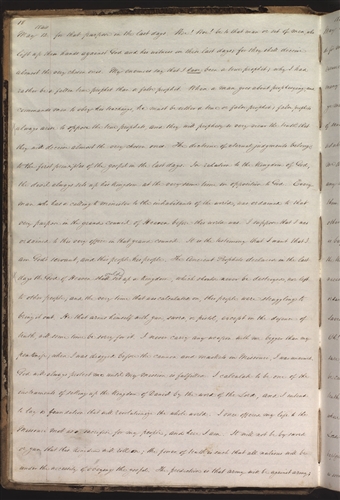 18
May 12. for that purpose in the last days. Woe! Woe! be to that man or set of men, who
lift up their hands against God and his witness in these last days: for they shall deceive
almost the very chosen ones. My enemies say that I have been a true prophet; why I had
rather be a fallen true prophet than a false prophet. When a man goes about prophesying, and
commands men to obey his teachings, he must be either a true or false prophet; false prophets
always arise to oppose the true prophets, and they will prophesy so very near the truth that
they will deceive almost the very chosen ones. The doctrine of eternal judgments belongs
to the first principles of the gospel in the last days. In relation to the Kingdom of God,
the devil always sets up his Kingdom at the very same time in opposition to God. Every
man who has a calling to minister to the inhabitants of the world, was ordained to that
very purpose in the grand council of Heaven before this world was. I suppose that I was
ordained to this very office in that grand council. It is the testimony that I want, that I
am God's servant, and this people his people. The Ancient Prophets declared in the last
days the God of Heaven should set up a Kingdom, which should never be destroyed, nor left
to other people; and the very time that was calculated on, this people were struggling to
bring it out. He that arms himself with gun, sword, or pistol, except in the defence of
truth, will some time be sorry for it. I never carry any weapon with me bigger than my
pen knife; when I was dragged before the cannon and muskets in Missouri, I was unarmed.
God will always protect me until my mission is fulfilled. I calculate to be one of the
instruments of setting up the Kingdom of Daniel by the word of the Lord, and I intend
to lay a foundation that will revolutionize the whole world. I once offered my life to the
Missouri mob as a sacrifice for my people, and here I am. It will not be by sword
or gun, that this Kingdom will roll on; the power of truth is such that all nations will be
under the necessity of obeying the gospel. The prediction is that army will be against army;